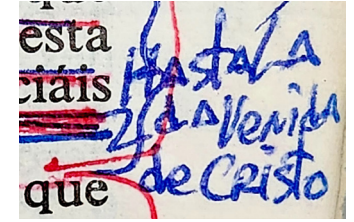 esta
ciáis
que
HASTA LA
2ª VENIDA
de CRISTO